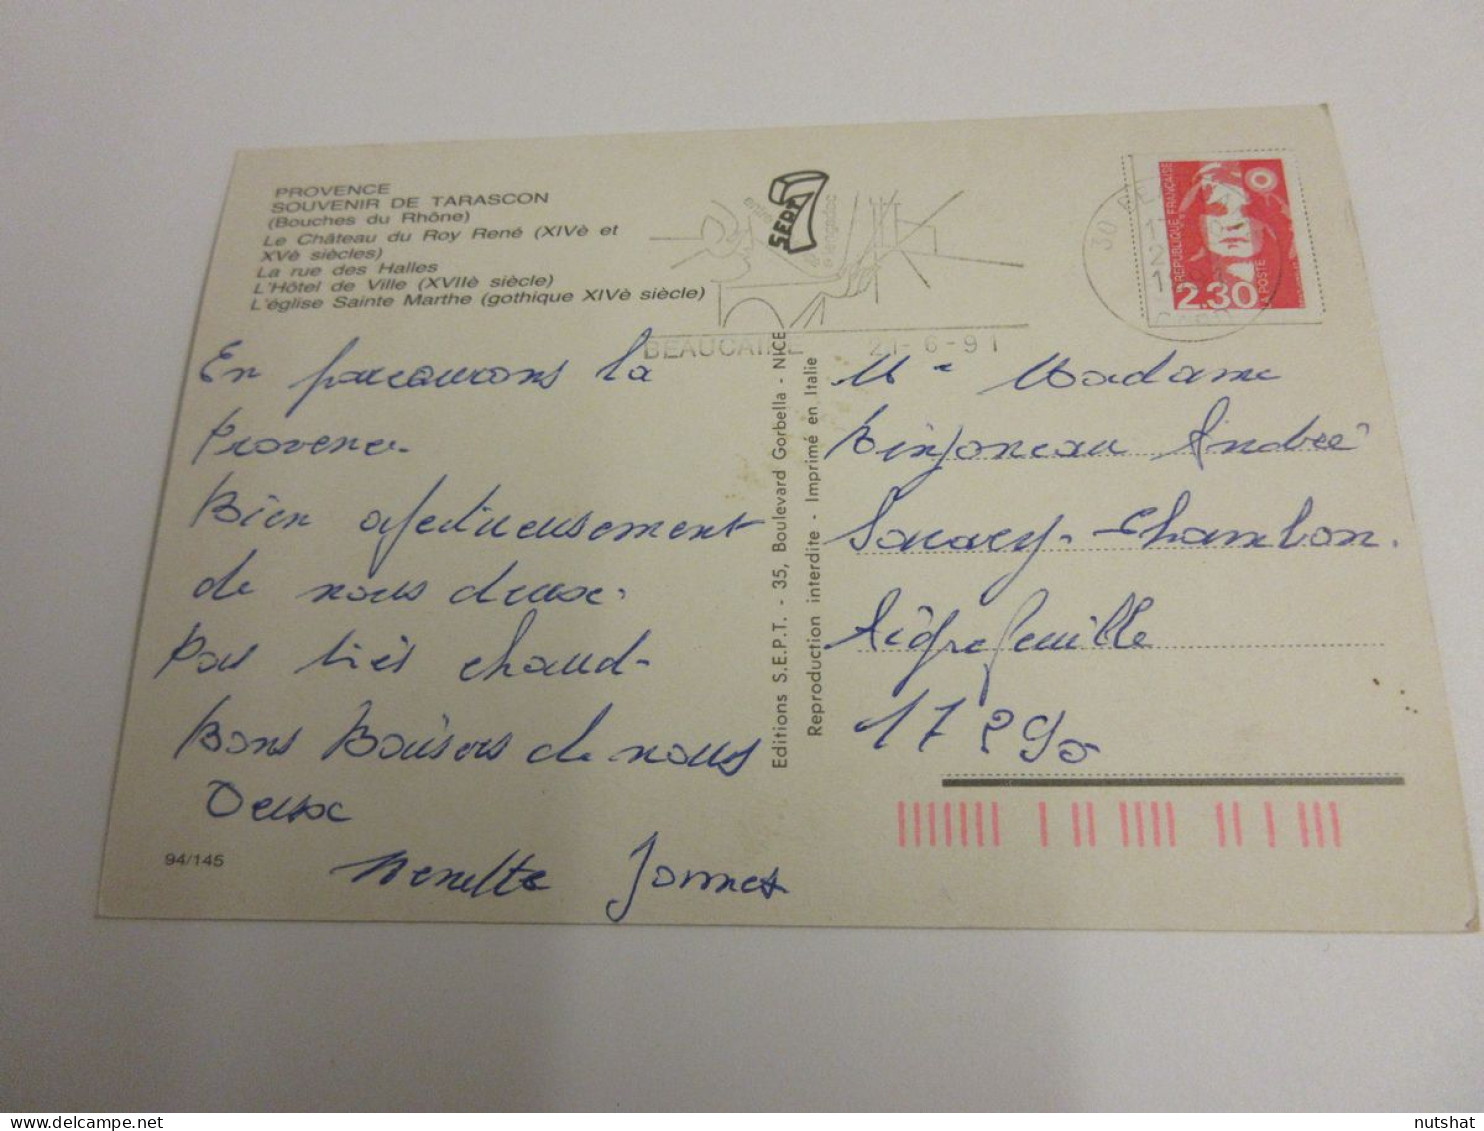 PROVENCE
SOUVENIR DE TARASCON
(Bouches du Rhône)
Le Château du Roy René (XIVè et
XVè siècles)
La rue des Halles
L'Hôtel de Ville (XVIIè siècle)
L'église Sainte Marthe (gothique XIVè siècle)
En parcourons la
Provence.
Bien afectueusement
de nous deux.
Pas très chaud.
Bons Baisers de nous
Deux
94/145
Editions S.E.P.T. - 35, Boulevard Gorbella - NICE
Reproduction interdite - Imprimé en Italie
SEPT
BEAUCAIRE 21-6-91
30
REPUBLIQUE FRANÇAISE
LA POSTE
2.30
Mr Madame
Binjoneau André
Chambon.
Aigrefeuille
17290
nutshat